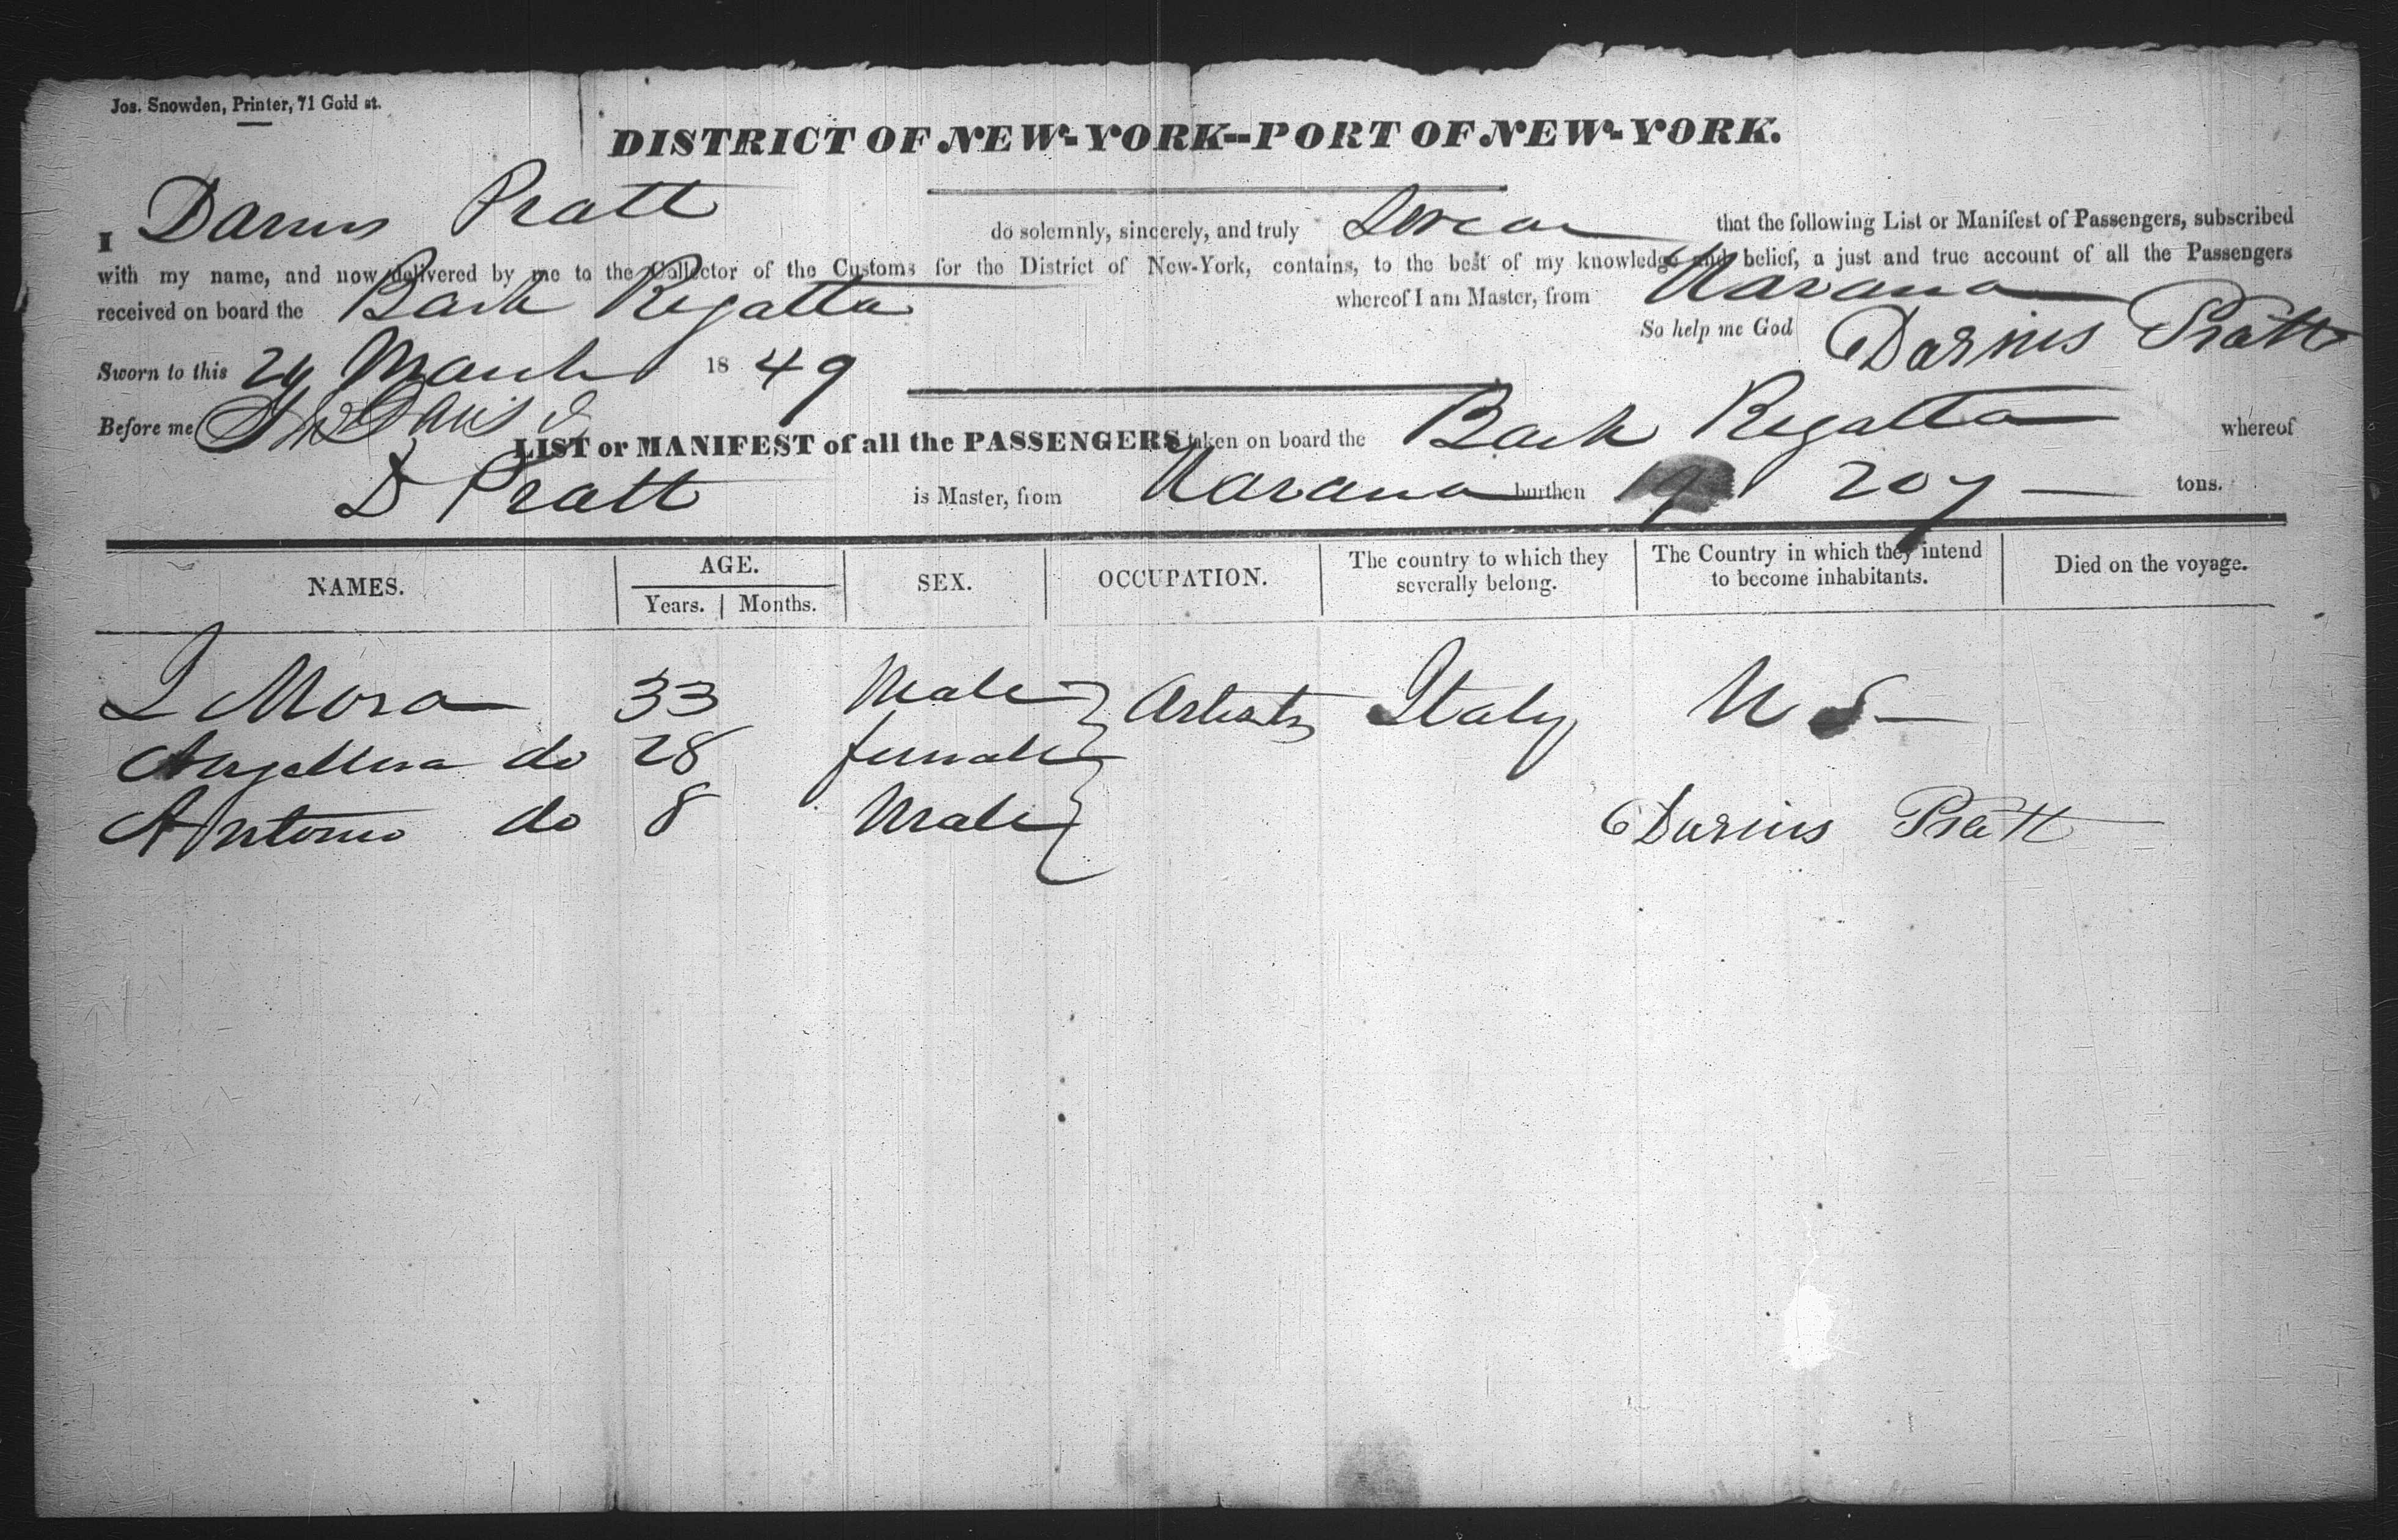 Jos. Snowden, Printer, 71 Gold st.
DISTRICT OF NEW-YORK--PORT OF NEW-YORK.
I Darius Pratt do solemnly, sincerely, and truly Swear that the following List or Manifest of Passengers, subscribed
with my name, and now delivered by me to the Collector of the Customs for the District of New-York, contains, to the best of my knowledge and belief, a just and true account of all the Passengers
received on board the Bark Regatta whereof I am Master, from Havana
So help me God Darius Pratt
Sworn to this 24 March 1849
Before me Davis
LIST or MANIFEST of all the PASSENGERS taken on board the Bark Regatta whereof
D Pratt is Master, from Havana burthen 207 tons.
NAMES. AGE. SEX. OCCUPATION. The country to which they severally belong. The Country in which they intend to become inhabitants. Died on the voyage.
Years. Months.
L Mora 33 Male Artists Italy U S
do 28 female
Antonio do 8 Male
Darius Pratt